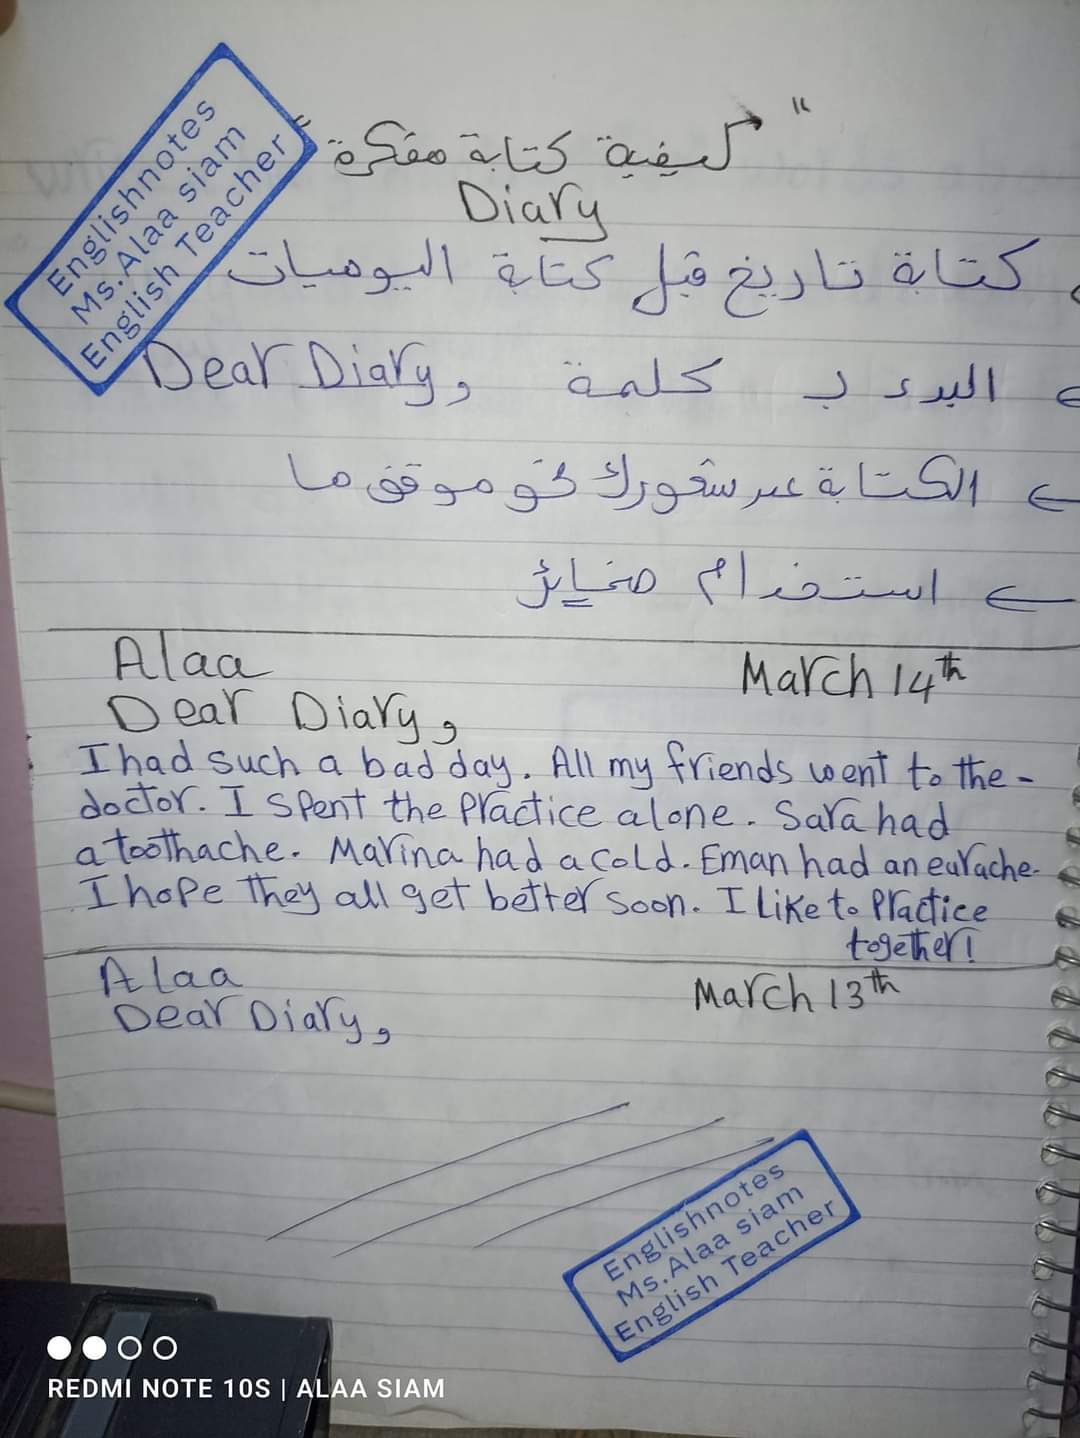 Englishnotes
Ms.Alaa siam
English Teacher
"كيفية كتابة مفكرة"
Diary
كتابة تاريخ قبل كتابة اليوميات
← البدء بـ كلمة Dear Diary,
← الكتابة عن شعورك نحو موقف ما
← استخدام ضمائر
Alaa March 14th
Dear Diary,
I had such a bad day. All my friends went to the-
doctor. I spent the Practice alone. Sara had
a toothache. Marina had a cold. Eman had an earache.
I hope they all get better soon. I Like to Practice
together!
Alaa March 13th
Dear Diary,
Englishnotes
Ms.Alaa siam
English Teacher
REDMI NOTE 10S | ALAA SIAM